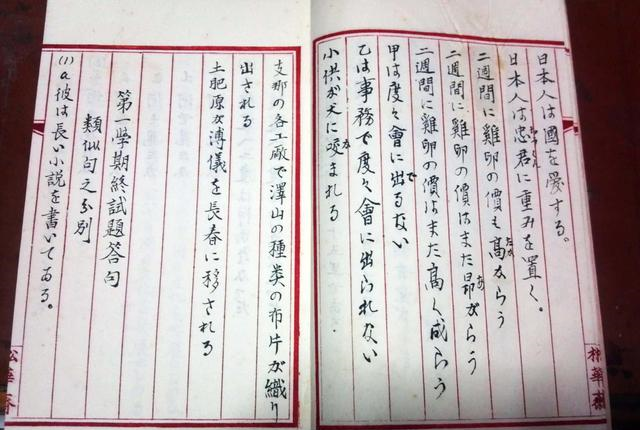 日本人は國を愛する。
日本人は忠君に重みを置く。
二週間に雞卵の價も高たならう
二週間に雞卵の價はまた昂あがらう
二週間に雞卵の價はまた高く成らう
甲は度々會に出でるない
乙は事務で度々會に出られない
小供が犬に咬まれる
支那の各工廠で澤山の種类の布片が織り
出される
土肥原が溥儀を長春に移される
第一學期終試題答句
類似句之分別
(1) a 彼は長い小説を書いてある。
松華齋